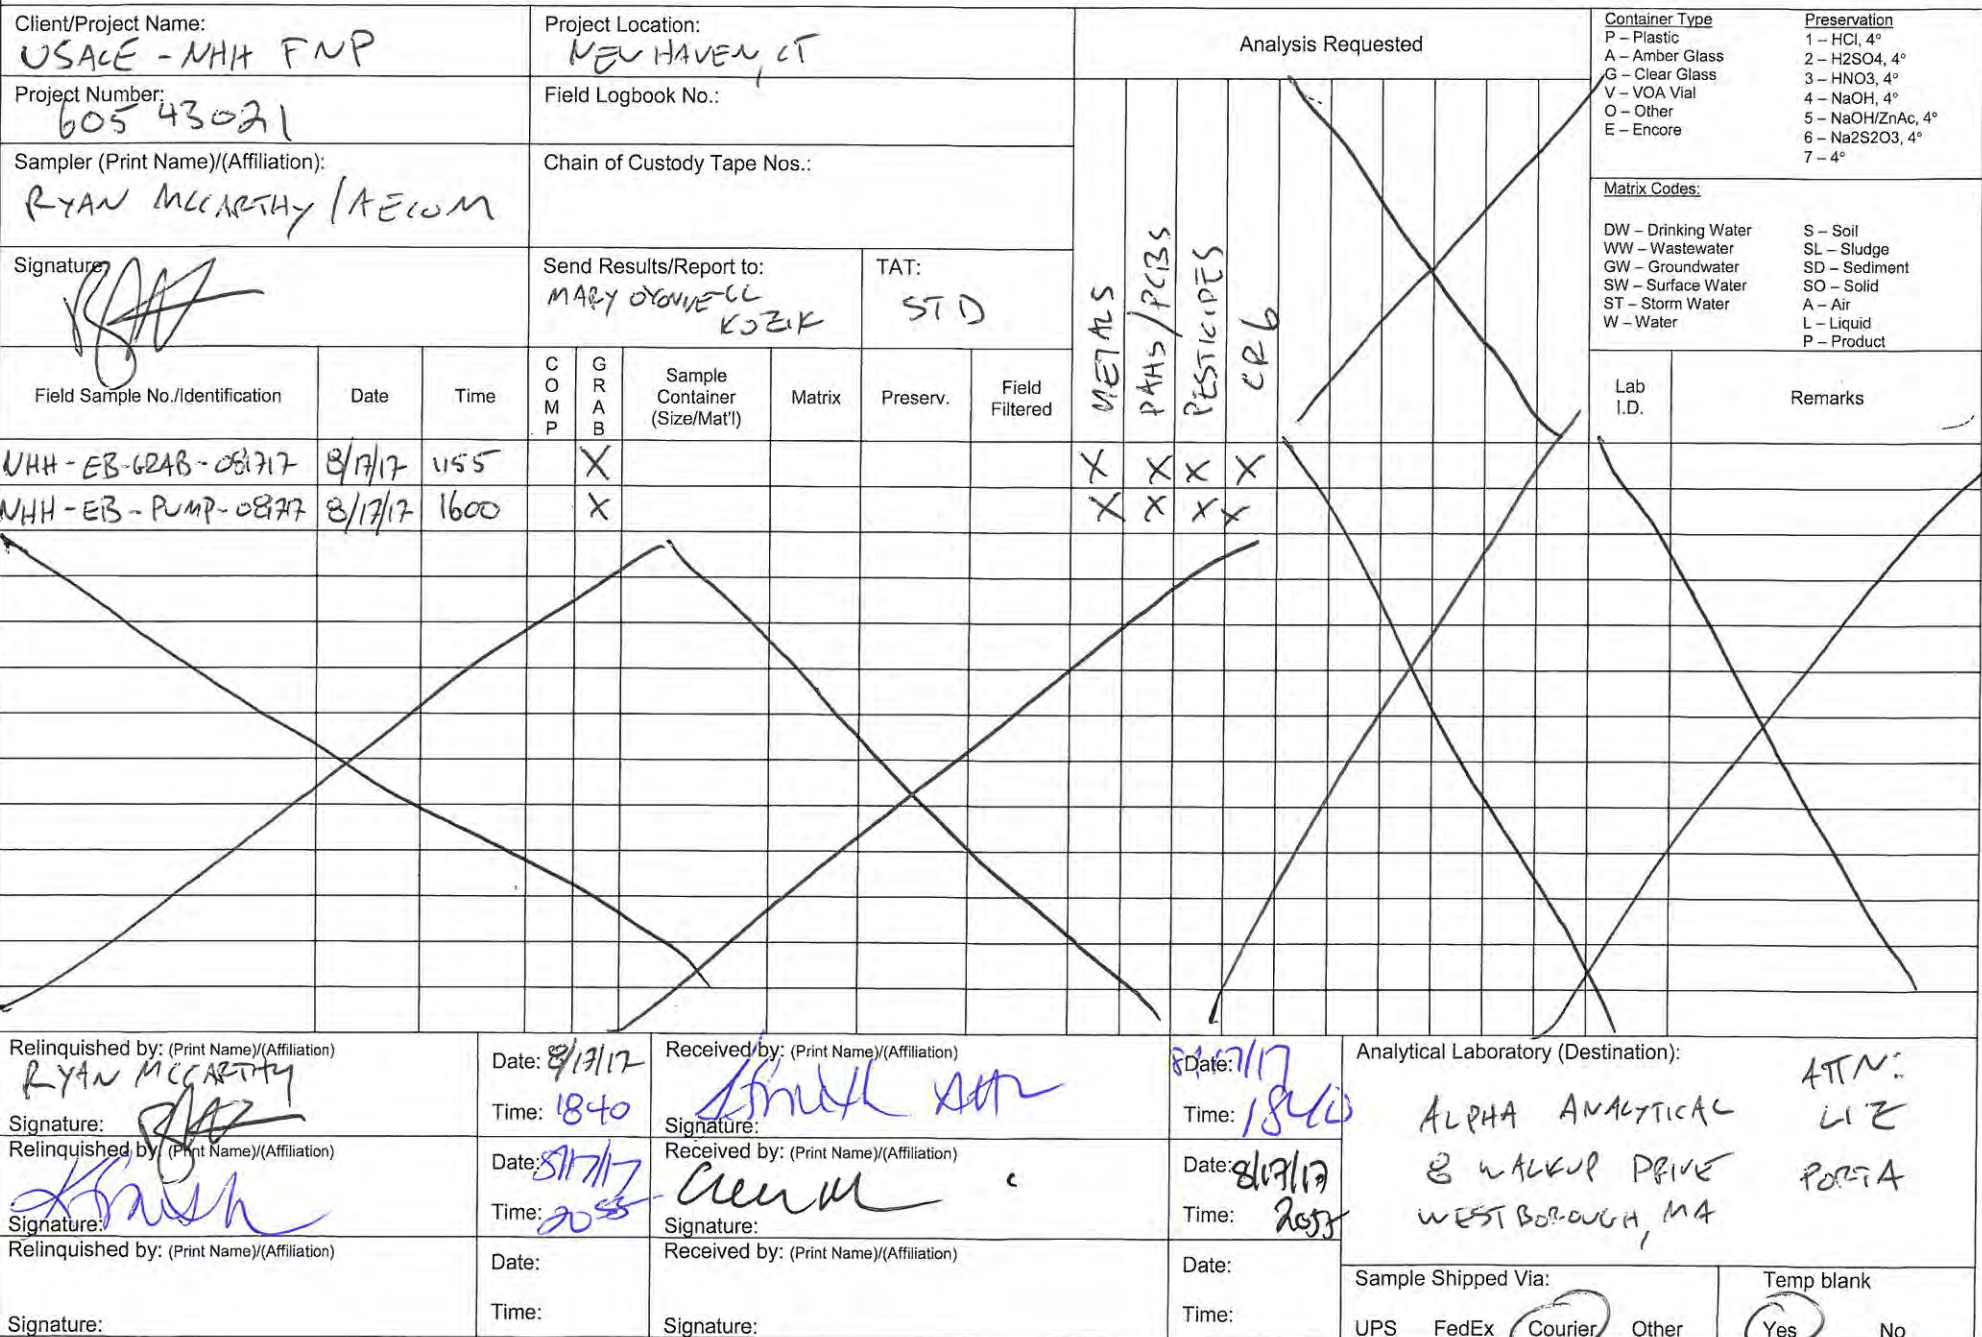 Client/Project Name:
USACE - NHH FNP
Project Location:
NEW HAVEN, CT
Analysis Requested
Project Number:
60543021
Field Logbook No.:
Sampler (Print Name)/(Affiliation):
RYAN MCCARTHY / AECOM
Chain of Custody Tape Nos.:
Signature:
Send Results/Report to:
MARY
KOZIK
TAT:
STD
Container Type
P – Plastic
A – Amber Glass
G – Clear Glass
V – VOA Vial
O – Other
E – Encore
Preservation
1 – HCl, 4°
2 – H2SO4, 4°
3 – HNO3, 4°
4 – NaOH, 4°
5 – NaOH/ZnAc, 4°
6 – Na2S2O3, 4°
7 – 4°
Matrix Codes:
DW – Drinking Water
WW – Wastewater
GW – Groundwater
SW – Surface Water
ST – Storm Water
W – Water
S – Soil
SL – Sludge
SD – Sediment
SO – Solid
A – Air
L – Liquid
P – Product
Field Sample No./Identification
Date
Time
COMP
GRAB
Sample
Container
(Size/Mat'l)
Matrix
Preserv.
Field
Filtered
METALS
PAHS/PCBS
PESTICIDES
CR6
Lab
I.D.
Remarks
NHH-EB-GRAB-081717 8/17/17 1155 X X X X X
NHH-EB-PUMP-081717 8/17/17 1600 X X X X X
Relinquished by: (Print Name)/(Affiliation)
RYAN MCCARTHY
Signature:
Date: 8/17/17
Time: 1840
Received by: (Print Name)/(Affiliation)
Signature:
Date: 8/17/17
Time: 1840
Relinquished by: (Print Name)/(Affiliation)
Signature:
Date: 8/17/17
Time: 2055
Received by: (Print Name)/(Affiliation)
Signature:
Date: 8/17/17
Time: 2055
Relinquished by: (Print Name)/(Affiliation)
Signature:
Date:
Time:
Received by: (Print Name)/(Affiliation)
Signature:
Date:
Time:
Analytical Laboratory (Destination):
ALPHA ANALYTICAL
8 WALKUP DRIVE
WESTBOROUGH, MA
ATTN:
LIZ
PORTA
Sample Shipped Via:
UPS FedEx Courier Other
Temp blank
Yes No